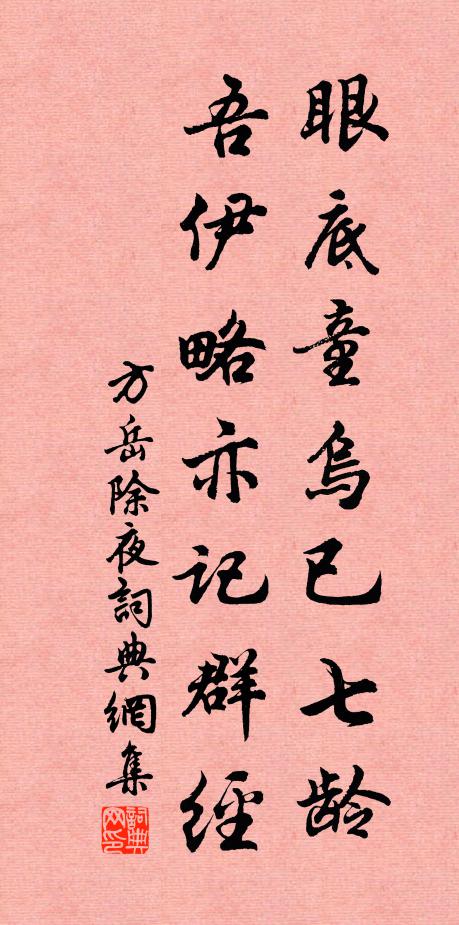 眼底童乌已七龄
吾伊略亦记群经
方岳除夜詞典網集
詞典网印